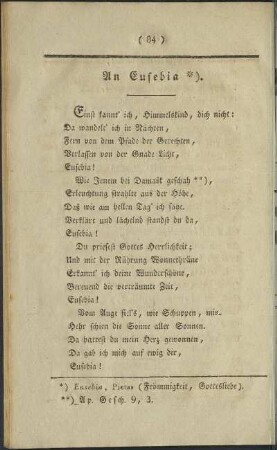 ( 84 )
An Eusebia *).
Einst kannt' ich, Himmelskind, dich nicht:
Da wandelt' ich in Nächten,
Fern von dem Pfade der Gerechten,
Verlassen von der Gnade Licht,
Eusebia!
Wie Jenem bei Damask geschah **),
Erleuchtung strahlte aus der Höhe,
Daß wie am hellen Tag' ich sahe.
Verklärt und lächelnd standst du da,
Eusebia!
Du priesest Gottes Herrlichkeit;
Und mit der Rührung Wonnethräne
Erkannt' ich deine Wunderschöne,
Bereuend die verträumte Zeit,
Eusebia!
Vom Auge fiel's, wie Schuppen, mir.
Hehr schien die Sonne aller Sonnen.
Da hattest du mein Herz gewonnen,
Da gab ich mich auf ewig dir,
Eusebia!
*) Eusebia, Pietas (Frömmigkeit, Gottesliebe).
**) Ap. Gesch. 9, 3.